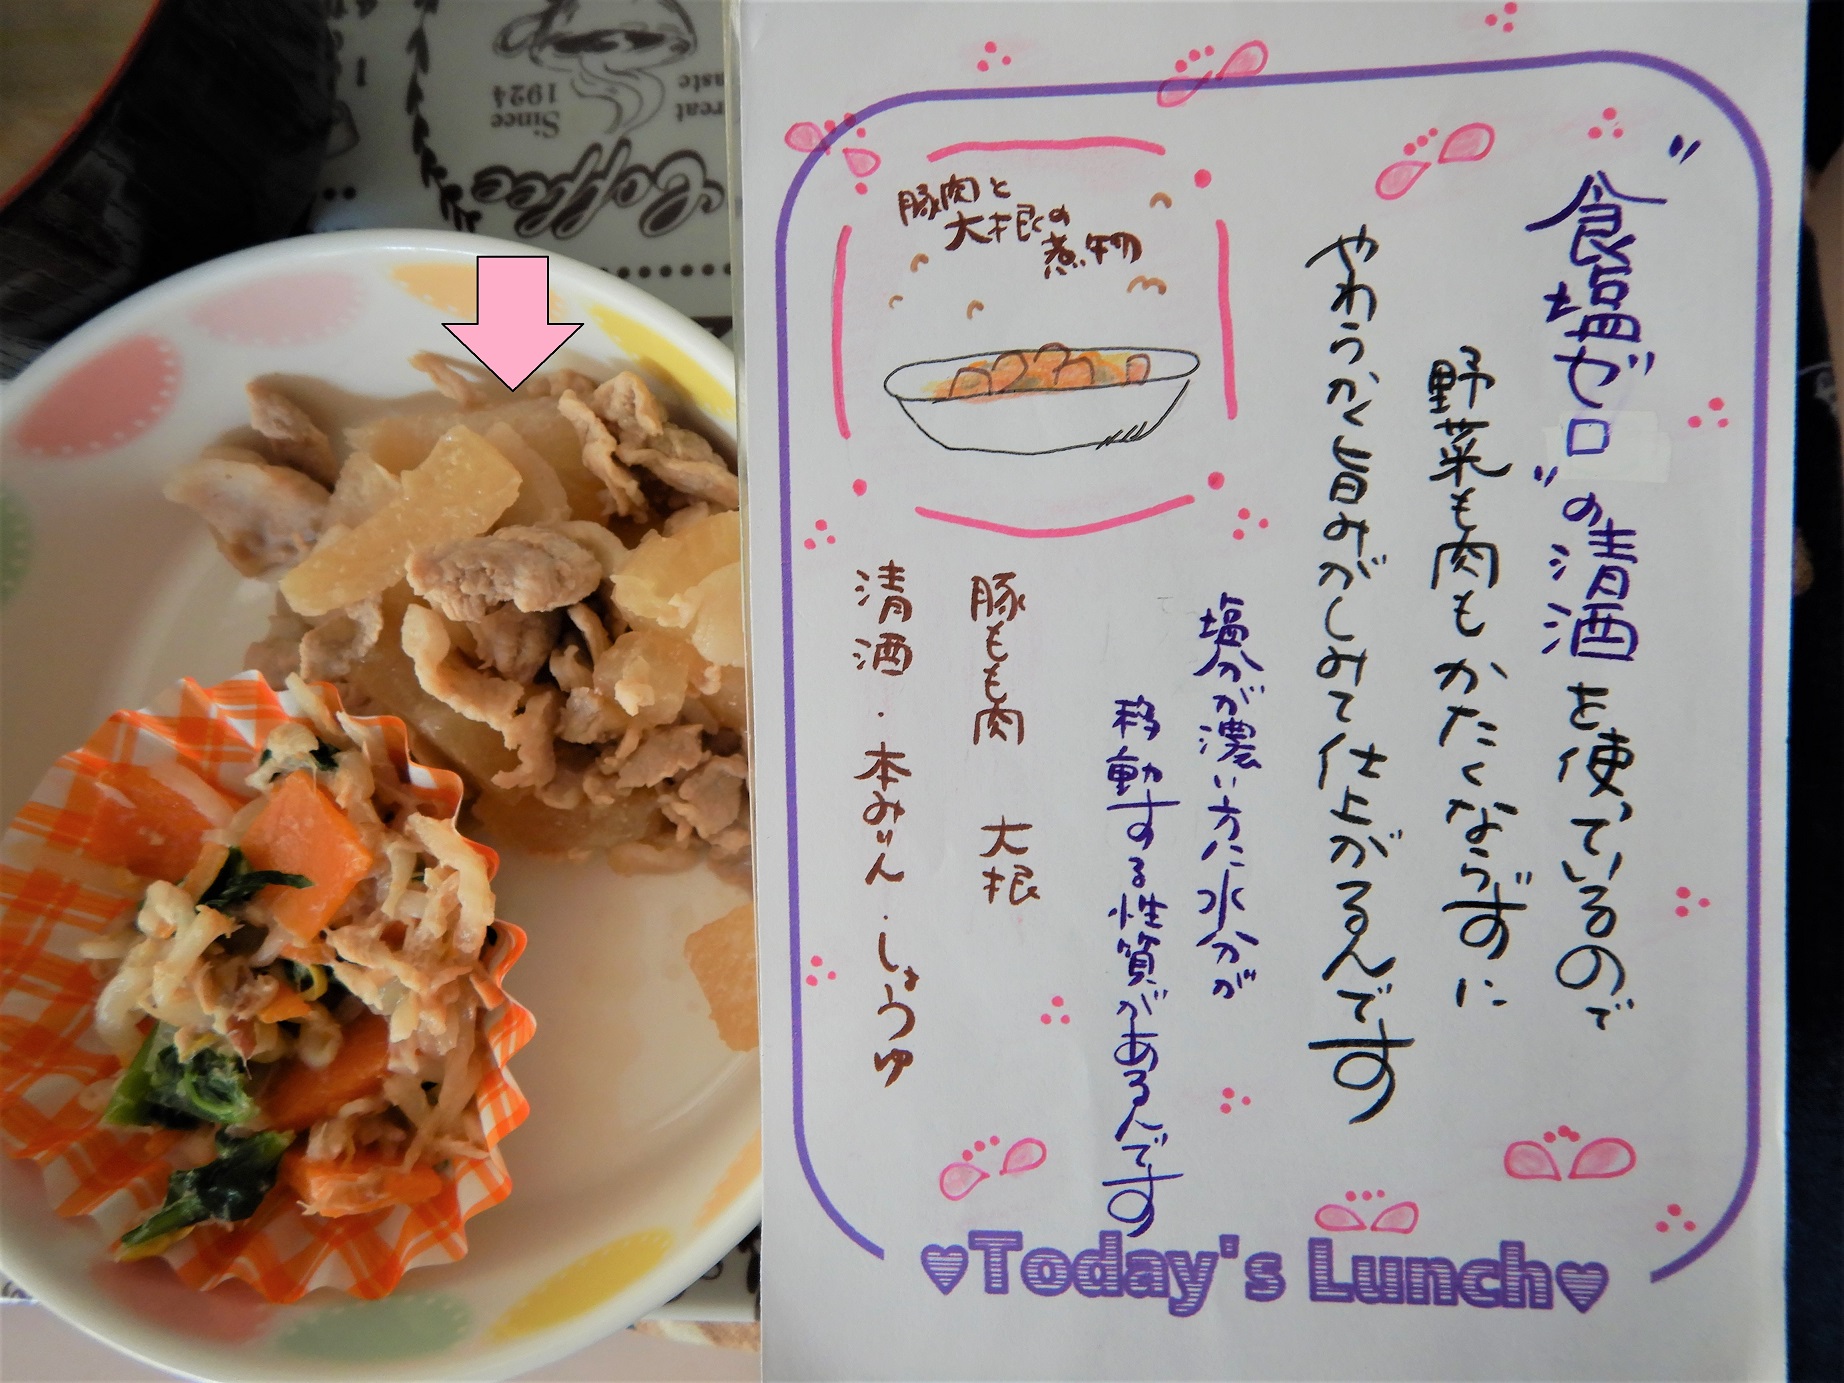 "食塩ゼロ"の清酒を使っているので
野菜も肉もかたくならずに
やわらか旨みがしみて仕上がるんです
塩分が濃い方に水分が
移動する性質があるんです
豚肉と
大根の
煮物
豚もも肉 大根
清酒・本みりん・しょうゆ
♥Today's Lunch♥
Coffee
Since
1924